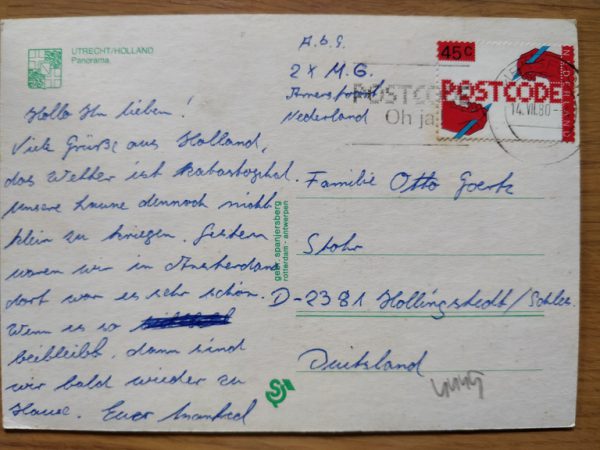 UTRECHT/HOLLAND
Panorama
Hallo Ihr lieben!
Viele Grüße aus Holland,
das Wetter ist katastrophal.
Unsere Laune dennoch nicht
klein zu kriegen. Gestern
waren wir in Amsterdam
dort war es sehr schön.
Wenn es so
beibleibt, dann sind
wir bald wieder zu
Hause. Euer Manfred
gebr. spanjersberg
rotterdam - antwerpen
A.b.S.
2 x M.G.
Amersfoort
Nederland
45c
POSTCODE
POSTCODE
Oh ja
14.VII.80
Familie Otto Goertz
Stohr
D-2381 Hollingstedt/Schles.
Duitsland